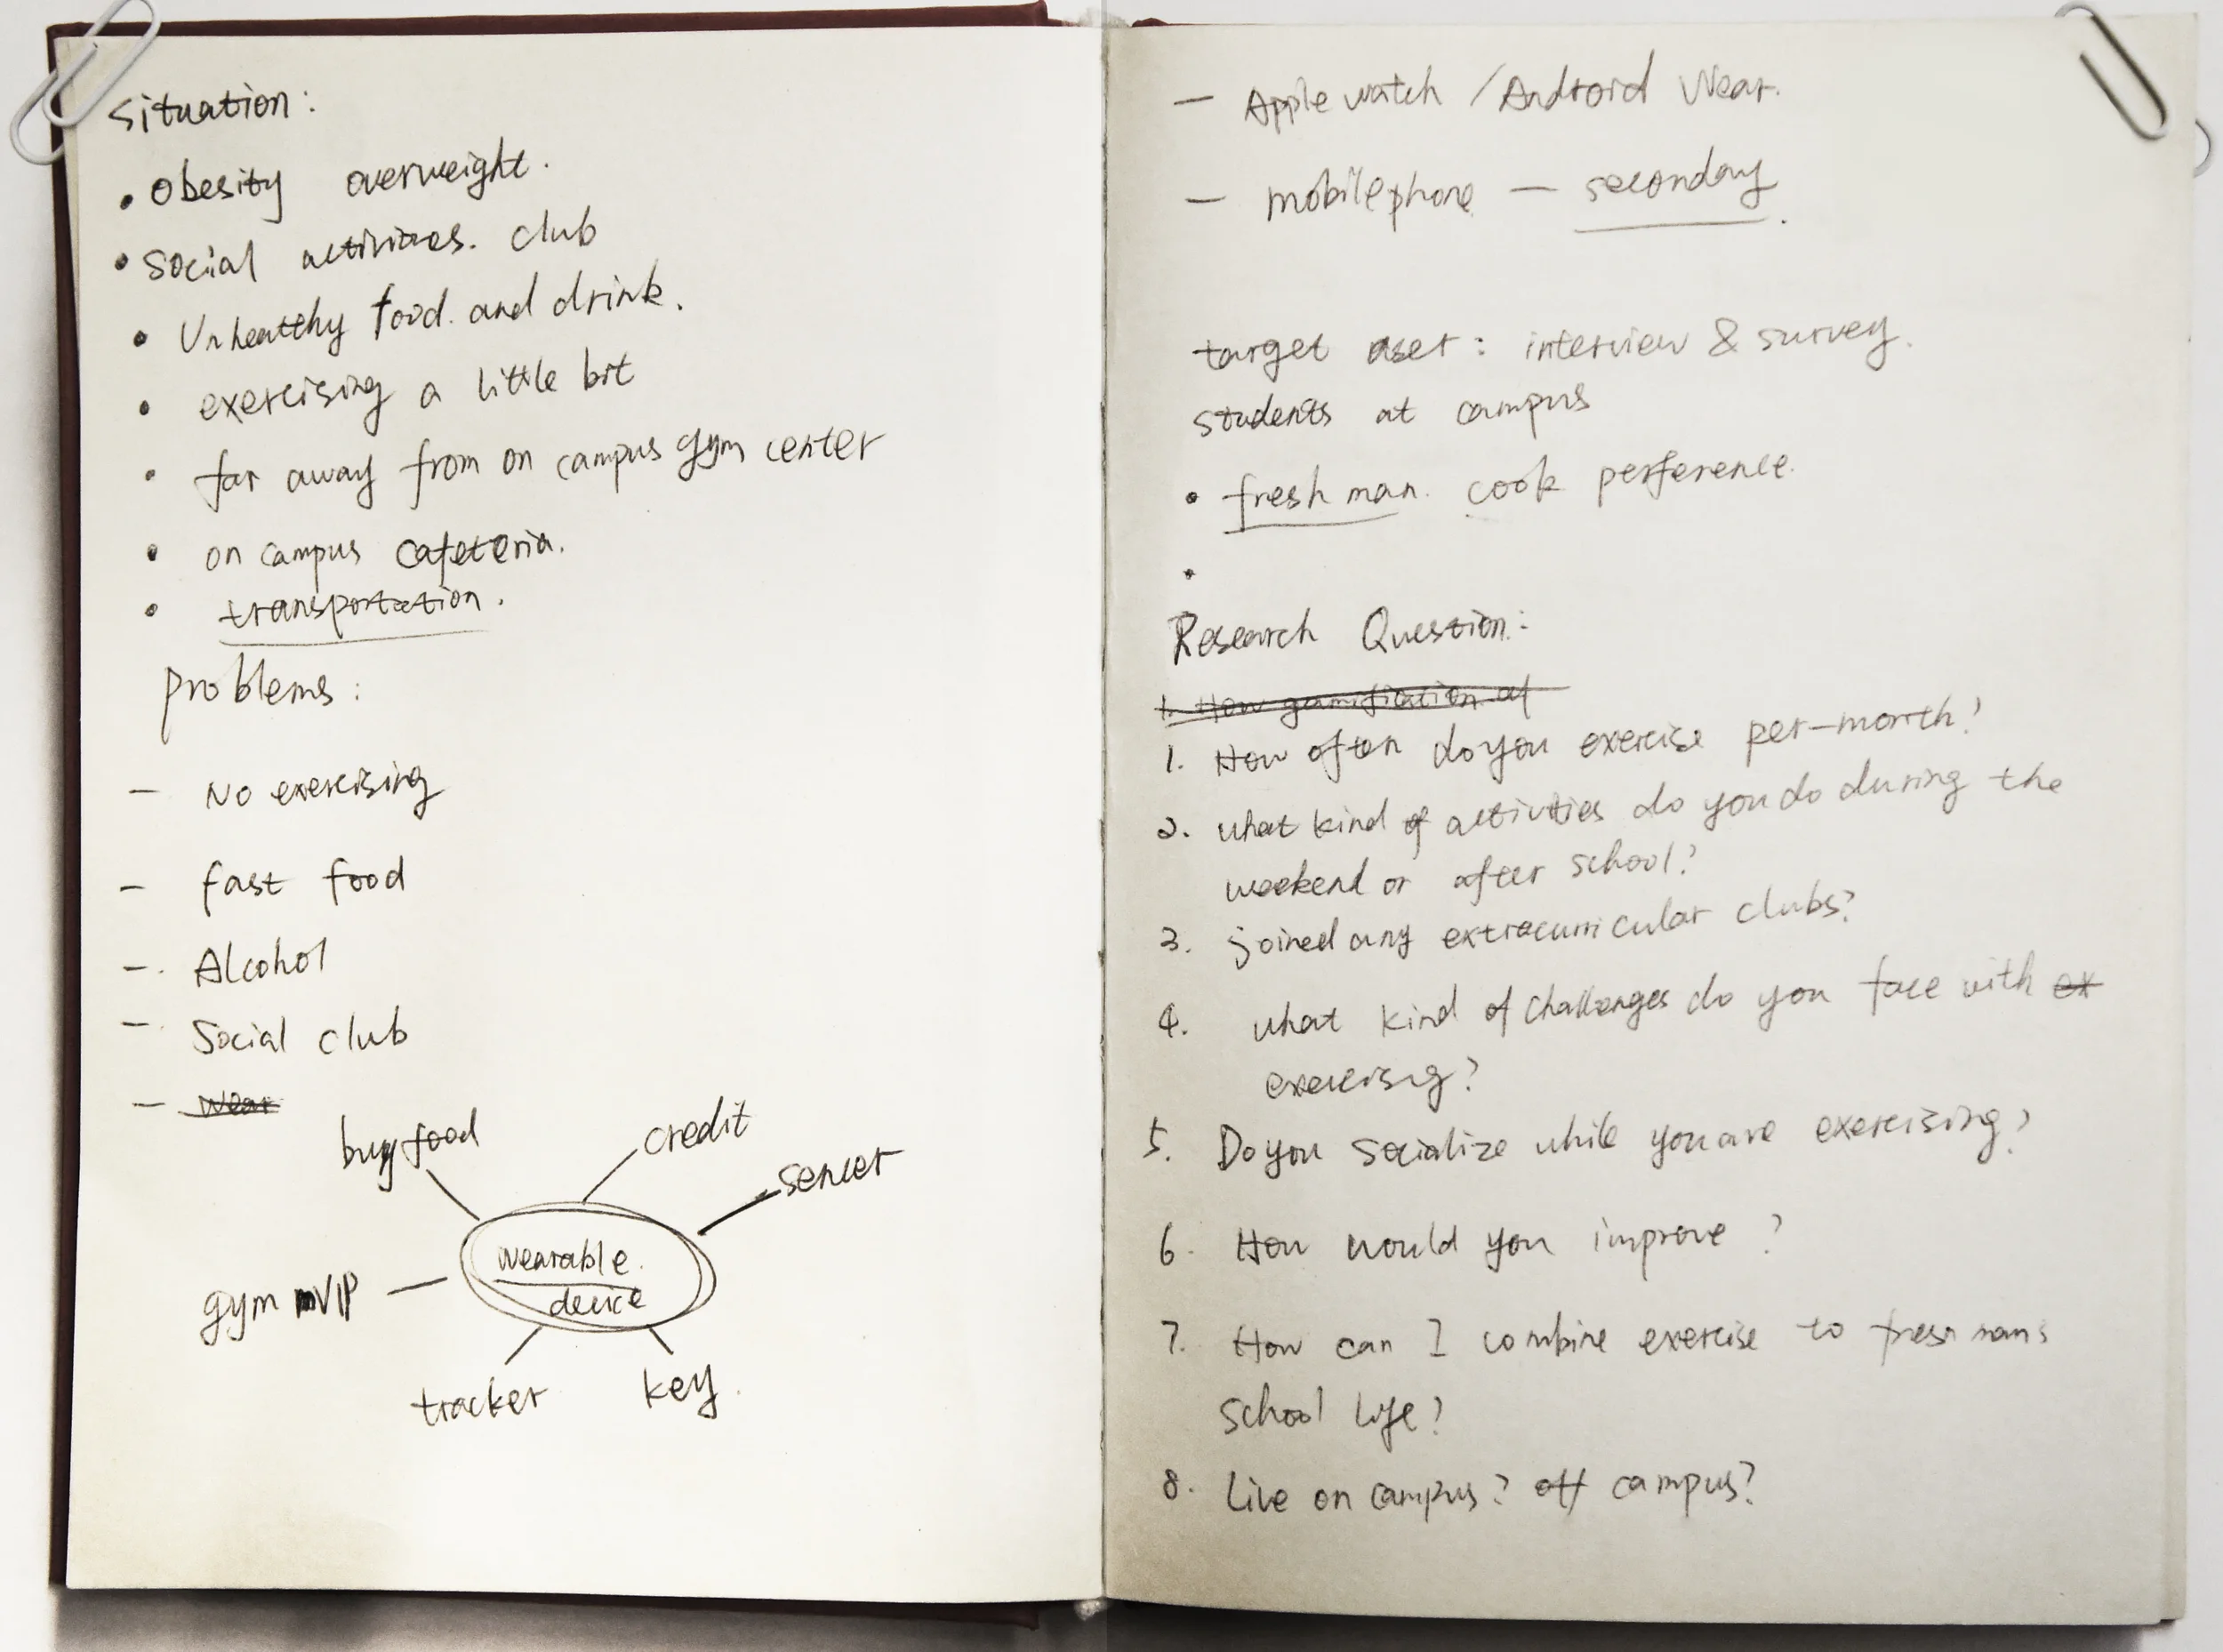 situation:
• Obesity overweight.
• Social activities. club
• Unhealthy food. and drink.
• exercising a little bit
• far away from on campus gym center
• on campus cafeteria.
• transportation.
problems:
- No exercising
- fast food
-. Alcohol
- Social club
- wear
buy food
credit
sencer
wearable
device
gym VIP
tracker
key.
- Apple watch / Android Wear.
- mobilephone - secondary.
target user: interview & survey.
students at campus
• fresh man. cook perference.
•
Research Question:
1. How gamifiation of
1. How often do you exercise per-month?
2. what kind of activities do you do during the
weekend or after school?
3. joined any extracurricular clubs?
4. what kind of challenges do you face with ex
exercisng?
5. Do you socialize while you are exercising?
6. How would you improve?
7. How can I combine exercise to freshmans
school life?
8. Live on campus? off campus?